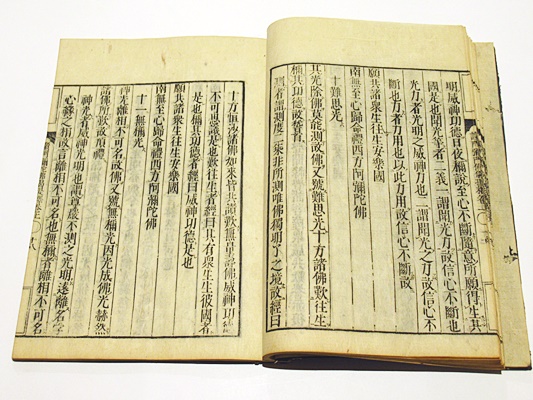 明威神功德日夜稱說至心不斷隨意所願得生其
國是也聞光一義一謂聞光之力故信心不
光力者光明之威神力也二謂聞光之力故信心不斷也
斷也力者力用也以此力用故信心不斷故
願共諸眾生往生安樂國
南無至心歸命禮西方阿彌陀佛
十難思光
其光除佛莫能測故佛又號難思光十方諸佛歎往生
稱其功德故
測者謂測度二乘非所測唯佛獨明了之境故經曰
十方恒沙諸佛如來皆共讚歎無量壽佛威神功
不可思議是也歎往生者經曰其有眾生生彼國者
是也稱其功德者經曰威神功德是也
願共諸眾生往生安樂國
南無至心歸命禮西方阿彌陀佛
十一無稱光
神光離相不可名故佛又號無稱光因光成佛光赫然
諸佛所歎故頂禮
神光者威神光明也謂尊嚴不測之光明遠離名字
心緣之相故言離相不可名也無稱者離相不可名